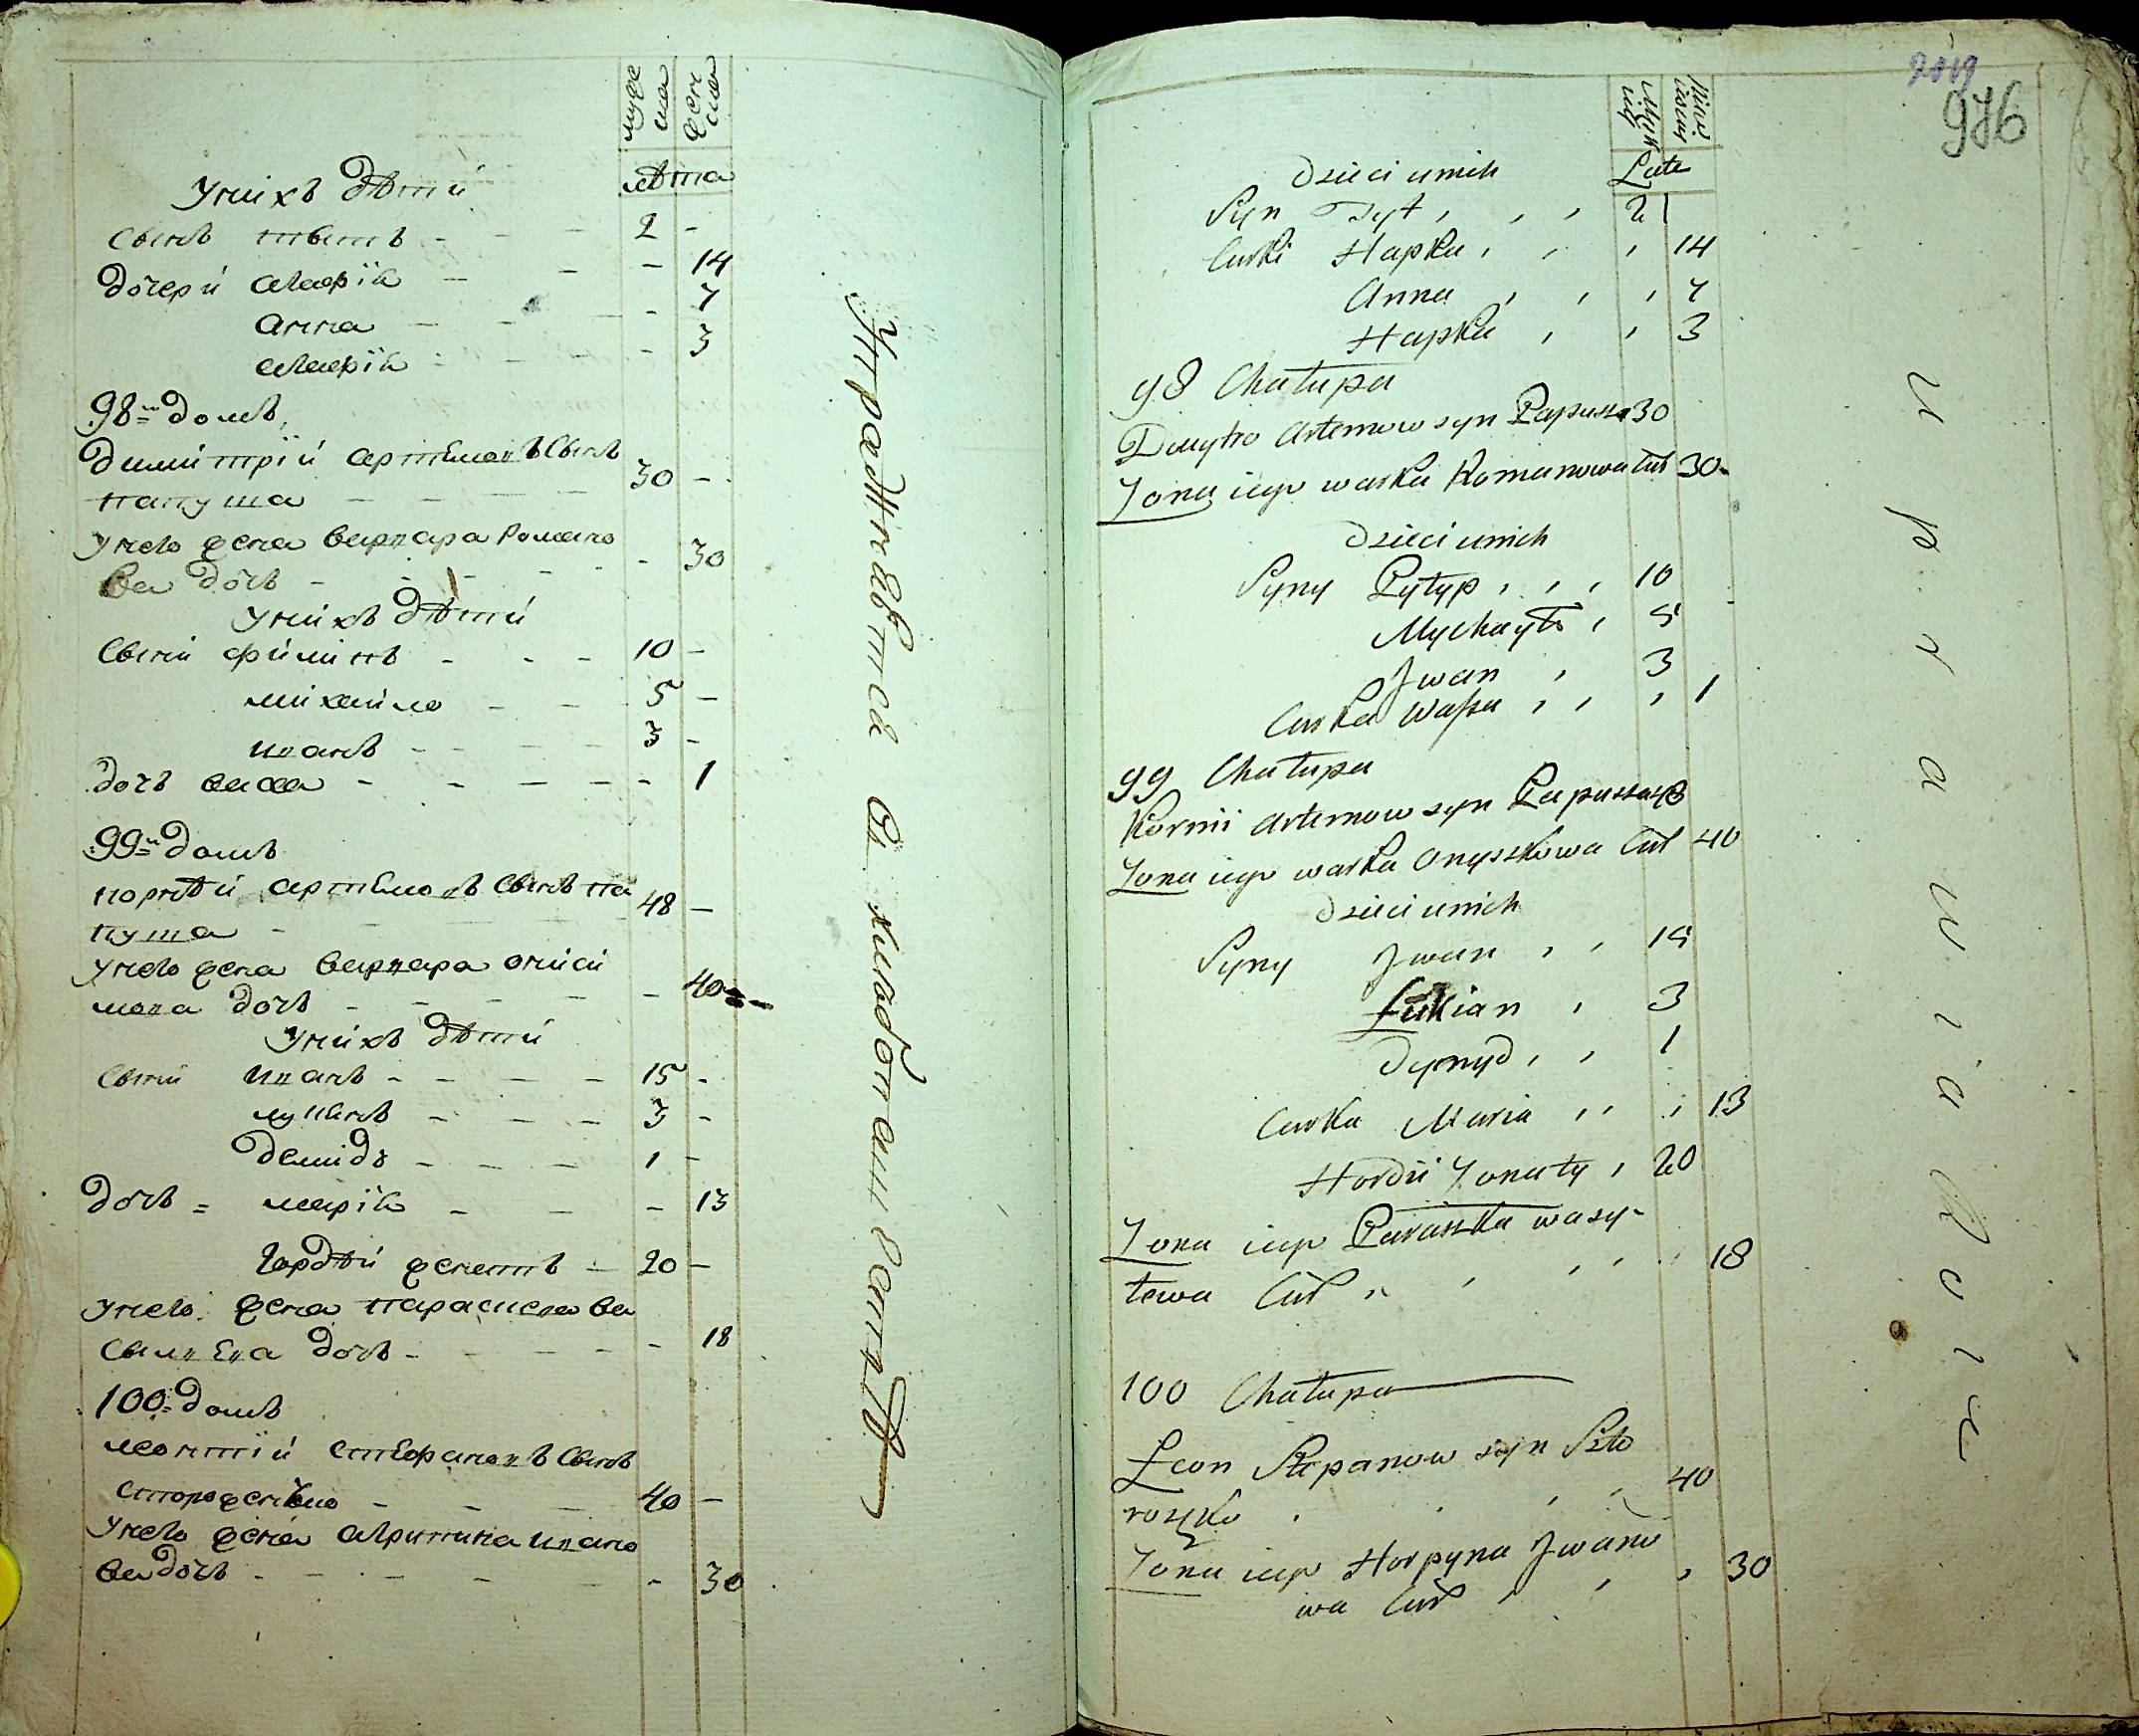 муже
ска
женс
ска
лѣта
У нихъ дѣти
Сынъ титъ - - 2 -
дочери агафія - - - 14
анна - - - 7
агафія - - - 3
98й домъ
димитрій артемовъ сынъ
папуша - - - 30 -
У него жена варвара Романо
ва дочь - - - 30
У нихъ дѣти
Сыни филипъ - - - 10 -
михайло - - 5 -
иванъ - - - 3 -
дочь васса - - - - - 1
99й домъ
корнѣй артемовъ сынъ па
пуша - 48 -
У него жена варвара ониси
мова дочь - - - 40
У нихъ дѣти
Сыни иванъ - - - - 15 -
лукянъ - - - 3 -
демидъ - - - 1 -
дочь = марія - - - 13
Гордѣй женатъ - 20 -
У него жена параскева ва
силиева дочь - - - - 18
100й домъ
леонтій стефановъ сынъ
стороженко - - - 40 -
У него жена агрипина ивано
ва дочь - - - - - 30
Упражняется в хлебопашестве
2019
976
Męzk
iey
Niew
iesciey
Lata
Dzieci u nich
Syn Tyt , , , 2
Curki Hapka , , , 14
Anna , , , 7
Hapka , , 3
98 Chałupa
Dmytro Artemow syn Papusza 30
Zona iego warka Romanowa Cur 30
Dzieci u nich
Syny Pyłyp , , , 10
Mychayło , 5
Jwan , 3
Curka Wassa , , , 1
99 Chałupa
Kornii Artemow syn Papusza 48
Zona iego warka Onyszkowa Cur 40
Dzieci u nich
Syny Jwan , , 15
Łukian , 3
Dymyd , , 1
Curka Maria , , , 13
Hordii Zonaty , 20
Zona iego Paraszka wasy-
lewa Cur , , , , 18
100 Chałupa
Leon Stepanow syn Sto
rozko , , , 40
Zona iego Horpyna Jwano
wa Cur , , , 30
uprawia Rolę